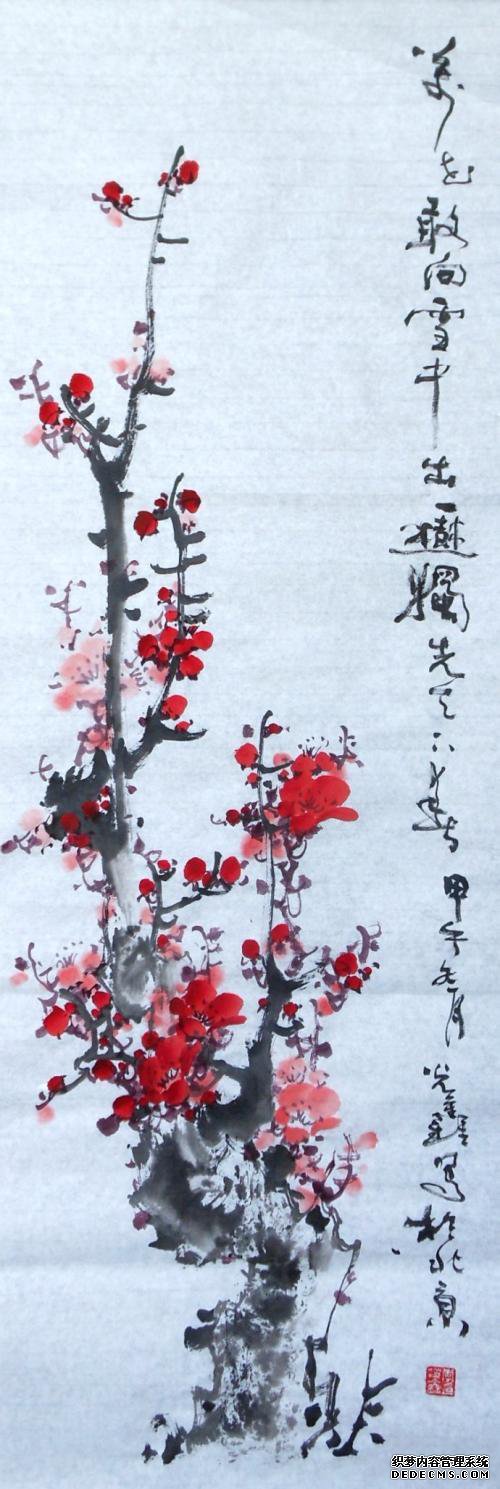 万花敢向雪中出一樹獨先天下春
甲午冬月光鑫寫於北京
织梦内容管理系统
DEDECMS.COM